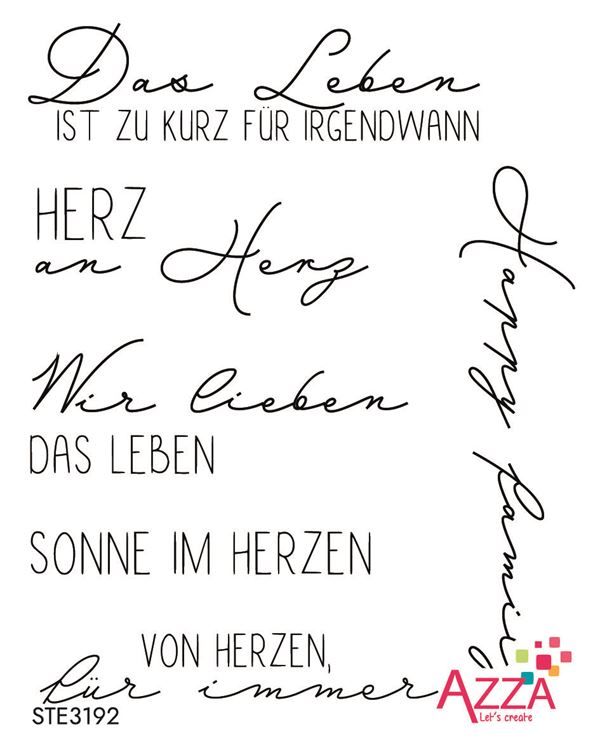 Das Leben
IST ZU KURZ FÜR IRGENDWANN
HERZ
an Herz
Wir lieben
DAS LEBEN
SONNE IM HERZEN
VON HERZEN,
für immer
Happy
STE3192
AZZA
Let's create